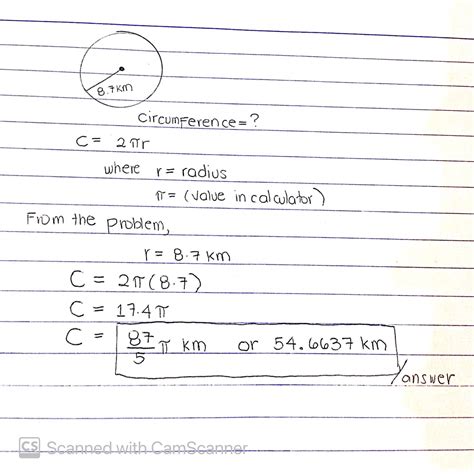 8.7km
Circumference = ?
C = 2πr
where r = radius
π = (value in calculator)
From the problem,
r = 8.7 km
C = 2π(8.7)
C = 17.4π
C = 87/5 π km or 54.6637 km
answer
CS Scanned with CamScanner